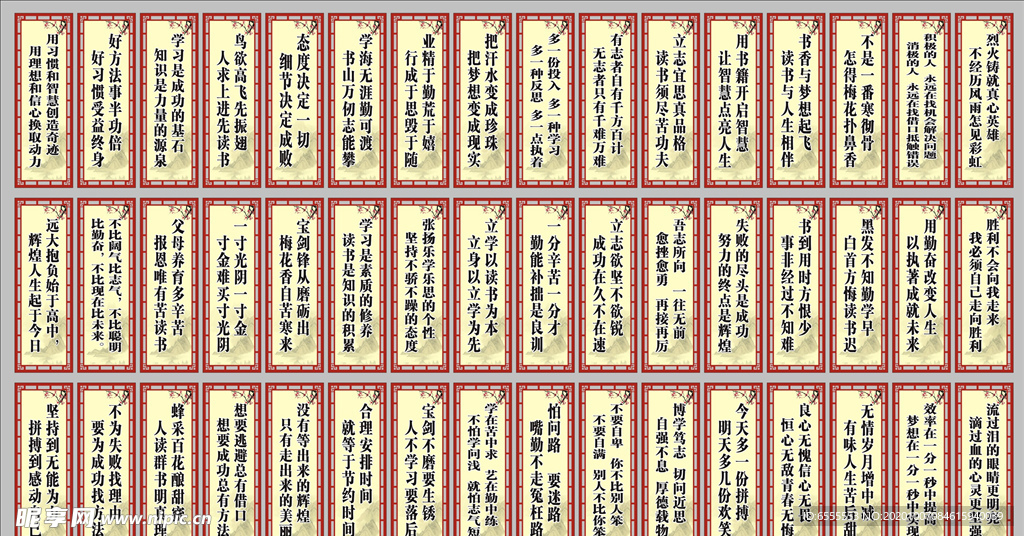 用习惯和智慧创造奇迹
用理想和信心换取动力
好方法事半功倍
好习惯受益终身
学习是成功的基石
知识是力量的源泉
鸟欲高飞先振翅
人求上进先读书
态度决定一切
细节决定成败
学海无涯勤可渡
书山万仞志能攀
业精于勤荒于嬉
行成于思毁于随
把汗水变成珍珠
把梦想变成现实
多一份投入 多一种学习
多一种反思 多一点执着
有志者自有千方百计
无志者只有千难万难
立志宜思真品格
读书须尽苦功夫
用书籍开启智慧
让智慧点亮人生
书香与梦想起飞
读书与人生相伴
不是一番寒彻骨
怎得梅花扑鼻香
积极的人 永远在找机会解决问题
消极的人 永远在找借口抵触错误
烈火铸就真心英雄
不经历风雨怎见彩虹
远大抱负始于高中，
辉煌人生起于今日
不比阔气比志气，不比聪明
比勤奋，不比现在比未来。
父母养育多辛苦
报恩唯有苦读书
一寸光阴一寸金
寸金难买寸光阴
宝剑锋从磨砺出
梅花香自苦寒来
学习是素质的修养
读书是知识的积累
张扬乐学乐思的个性
坚持不骄不躁的态度
立学以读书为本
立身以立学为先
一分辛苦一分才
勤能补拙是良训
立志欲坚不欲锐
成功在久不在速
吾志所向 一往无前
愈挫愈勇 再接再厉
失败的尽头是成功
努力的终点是辉煌
书到用时方恨少
事非经过不知难
黑发不知勤学早
白首方悔读书迟
用勤奋改变人生
以执著成就未来
胜利不会向我走来
我必须自己走向胜利
坚持到无能为
拼搏到感动
不为失败找理由
要为成功找方
蜂采百花酿甜蜜
人读群书明真理
想要逃避总有借口
想要成功总有方法
没有等出来的辉煌
只有走出来的美丽
合理安排时间
就等于节约时间
宝剑不磨要生锈
人不学习要落后
学在苦中求 艺在勤中练
不怕学问浅 就怕志气短
怕问路 要迷路
嘴勤不走冤枉路
不要自卑 你不比别人笨
不要自满 别人不比你笨
博学笃志 切问近思
自强不息 厚德载物
今天多一份拼搏
明天多几份欢笑
良心无愧信心无畏
恒心无敌青春无悔
无情岁月增中减
有味人生苦后甜
效率在一分一秒中提高
梦想在一分一秒中实现
流过泪的眼睛更明亮
滴过血的心灵更坚强
昵享网 www.nipic.cn